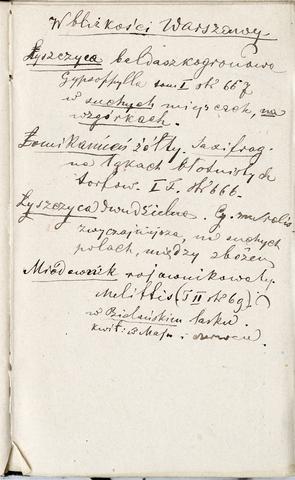 W bliskości Warszawy
Łyszczyca baldaszkogronowa
Gypsophylla tom I str 667
w suchych miejscach, na
wzgórkach.
Łomikamień żółty. Saxifrag.
na łąkach błotnistych
torfow. I T. str 666.
Łyszczyca dwudzielna. G. muralis
zwyczajniejsza, na suchych
polach, między zbożem
Miodownik rojownikowaty.
Melittis (T II str 69)
w Bielańskim lasku.
kwit: w Maju i czerwcu.